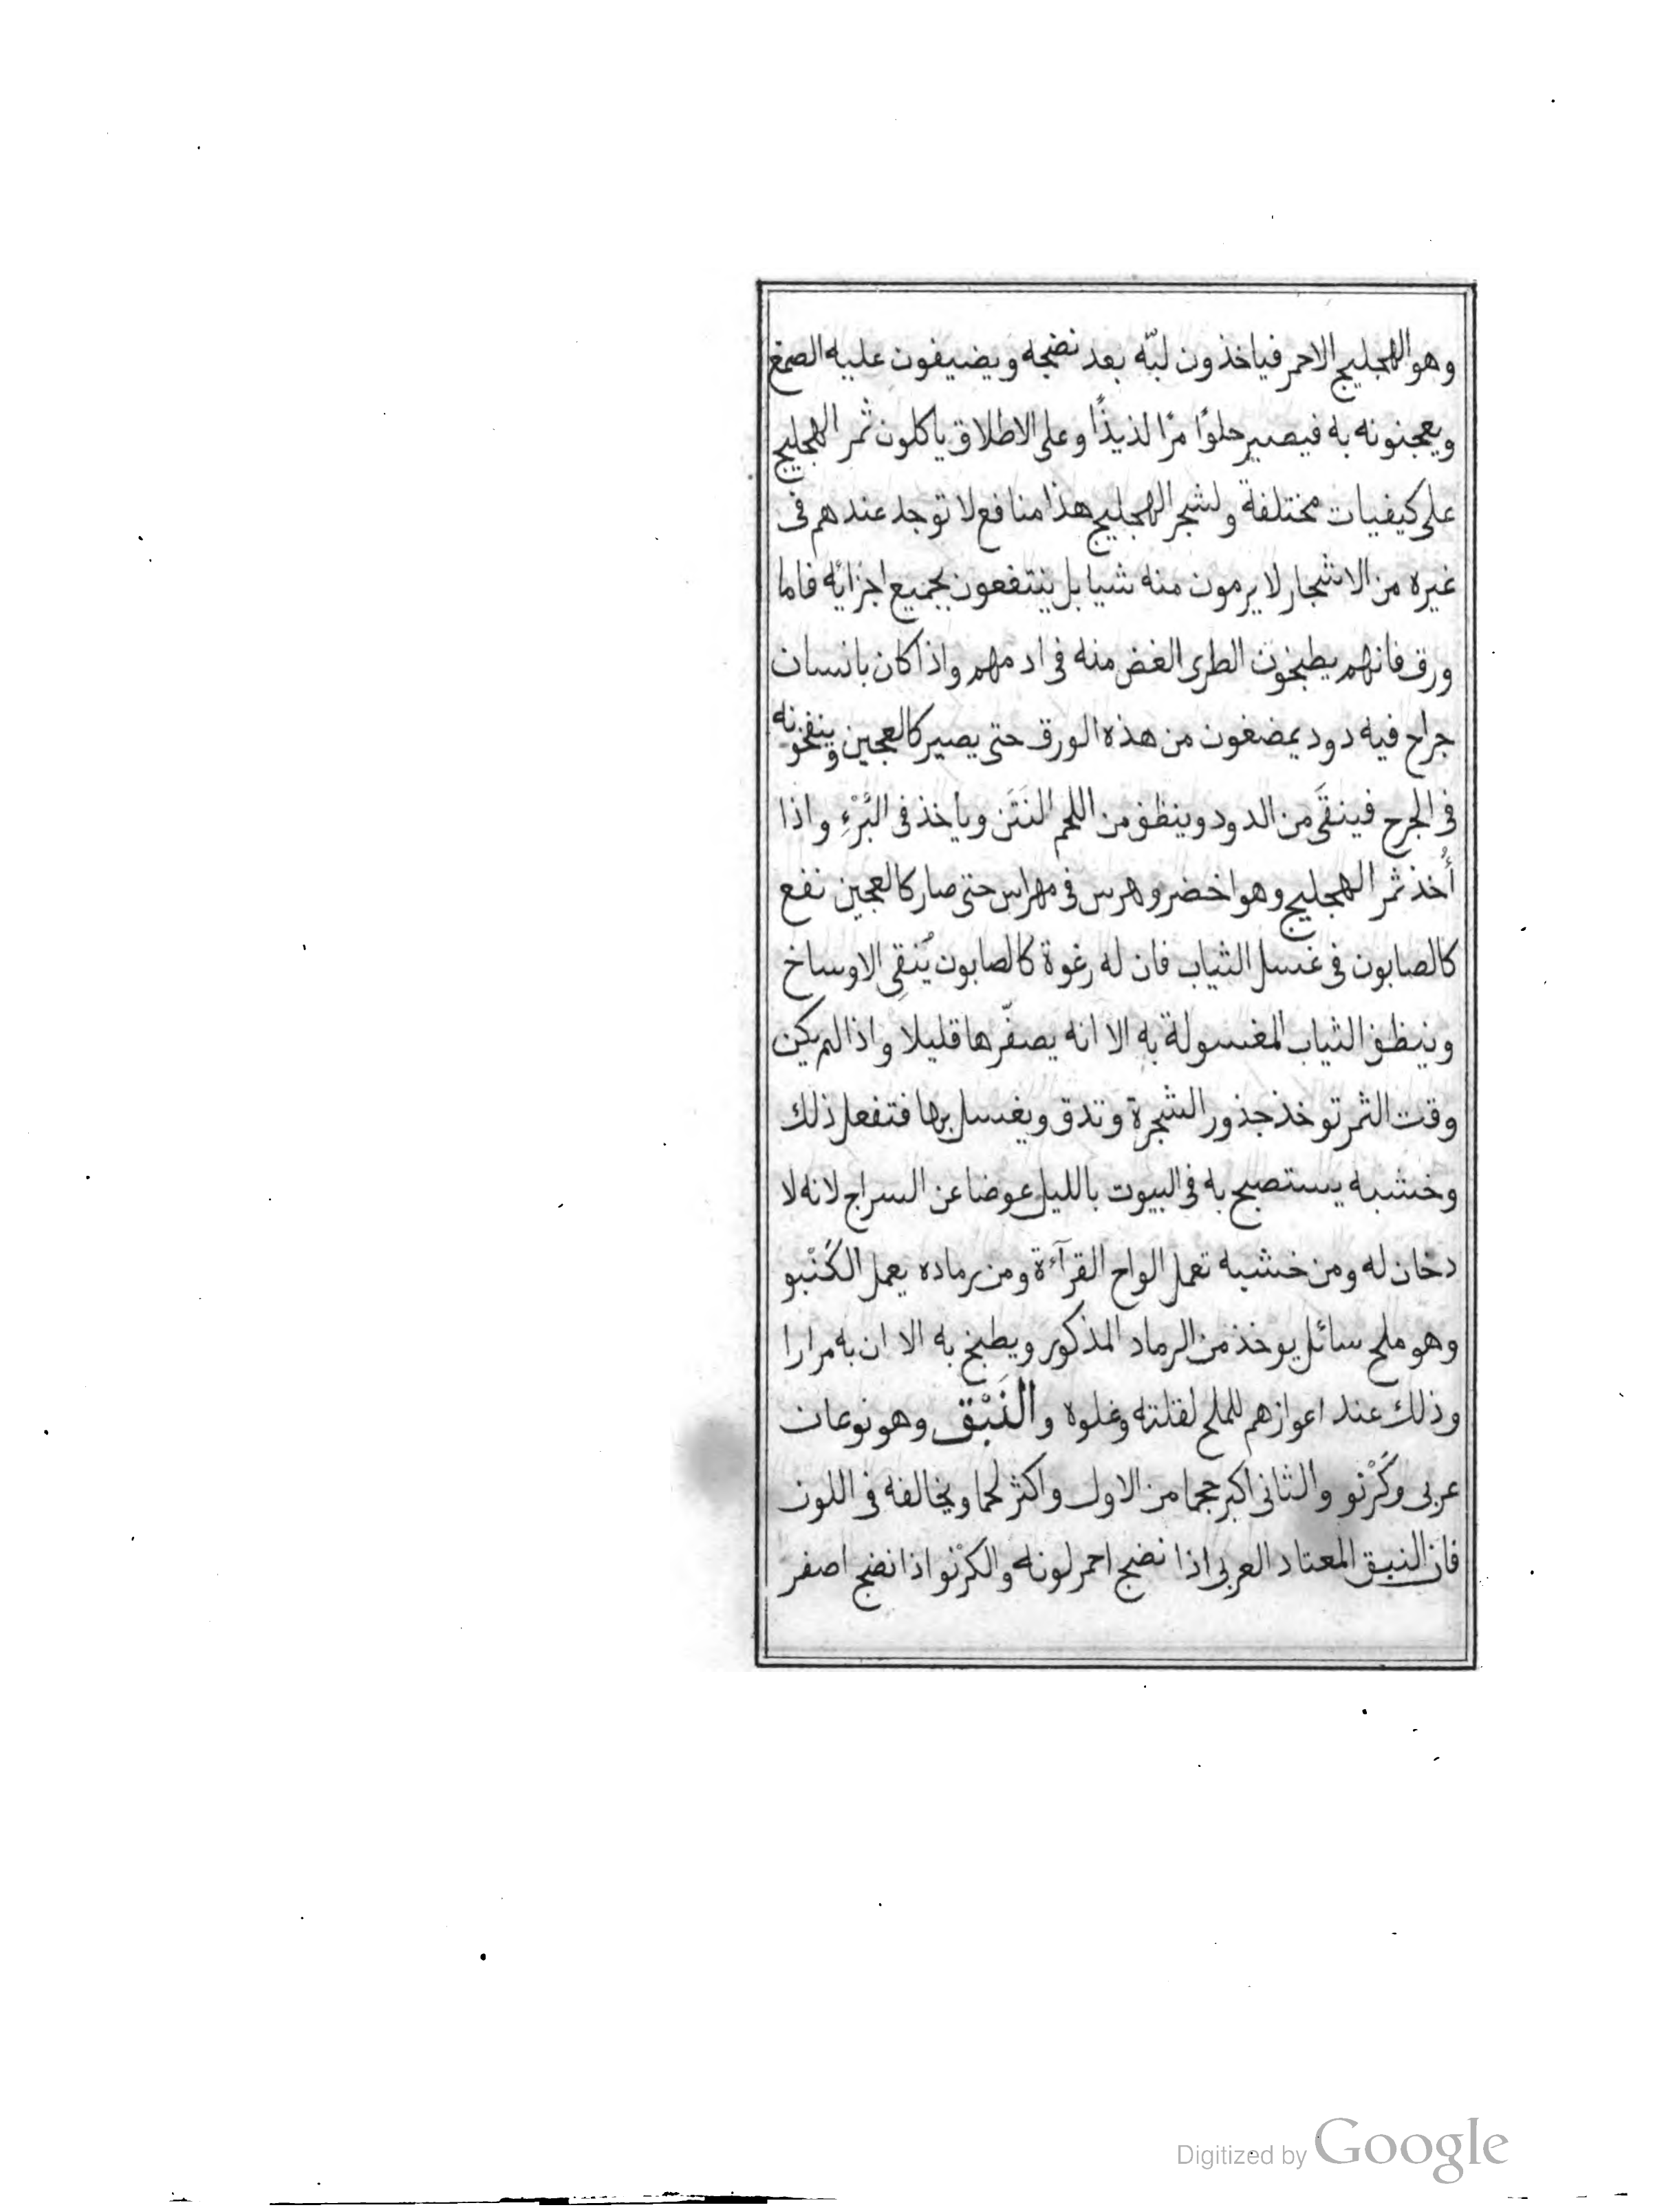 وهو الهجليج الاحمر فياخذون لبّه بعد نضجه ويضيفون عليه الصمغ
ويعجنونه به فيصير حلوًا مزًا لذيذًا وعلى الاطلاق ياكلون ثمر الهجليج
على كيفيات مختلفة ولشجر الهجليج هذا منافع لا توجد عندهم فى
غيره من الاشجار لا يرمون منه شيا بل ينتفعون بجميع اجزائه فاما
ورقه فانهم يطبخون الطرى الغض منه فى ادمهم واذا كان بانسان
جراح فيه دود يمضغون من هذه الورق حتى يصير كالعجين وينفخونه
فى الجرح فينقَى من الدود وينظف من اللحم النَتَن وياخذ فى البُرْءِ واذا
أُخذ ثمر الهجليج وهو اخضر وهرس فى مهراس حتى صار كالعجين نفع
كالصابون فى غسل الثياب فان له رغوة كالصابون يُنقِى الاوساخ
وينظف الثياب المغسولة به الا انه يصفّرها قليلا واذا لم يكن
وقت الثمر توخذ جذور الشجرة وتدق ويغسل بها فتفعل ذلك
وخشبه يستصبح به فى البيوت بالليل عوضا عن السراج لانه لا
دخان له ومن خشبه تعمل الواح القرآءة ومن رماده يعمل الكَنْبو
وهو ملح سائل يوخذ من الرماد المذكور ويطبخ به الا ان به مرارا
وذلك عند اعوازهم للملح لقلته وغلوه والنَبْق وهو نوعان
عربى وكُرْنو والثانى اكبر حجما من الاول واكثر لحما ويخالفه فى اللون
فان النبق المعتاد العربى اذا نضج احمر لونه والكرْنو اذا نضج اصفر
Digitized by Google